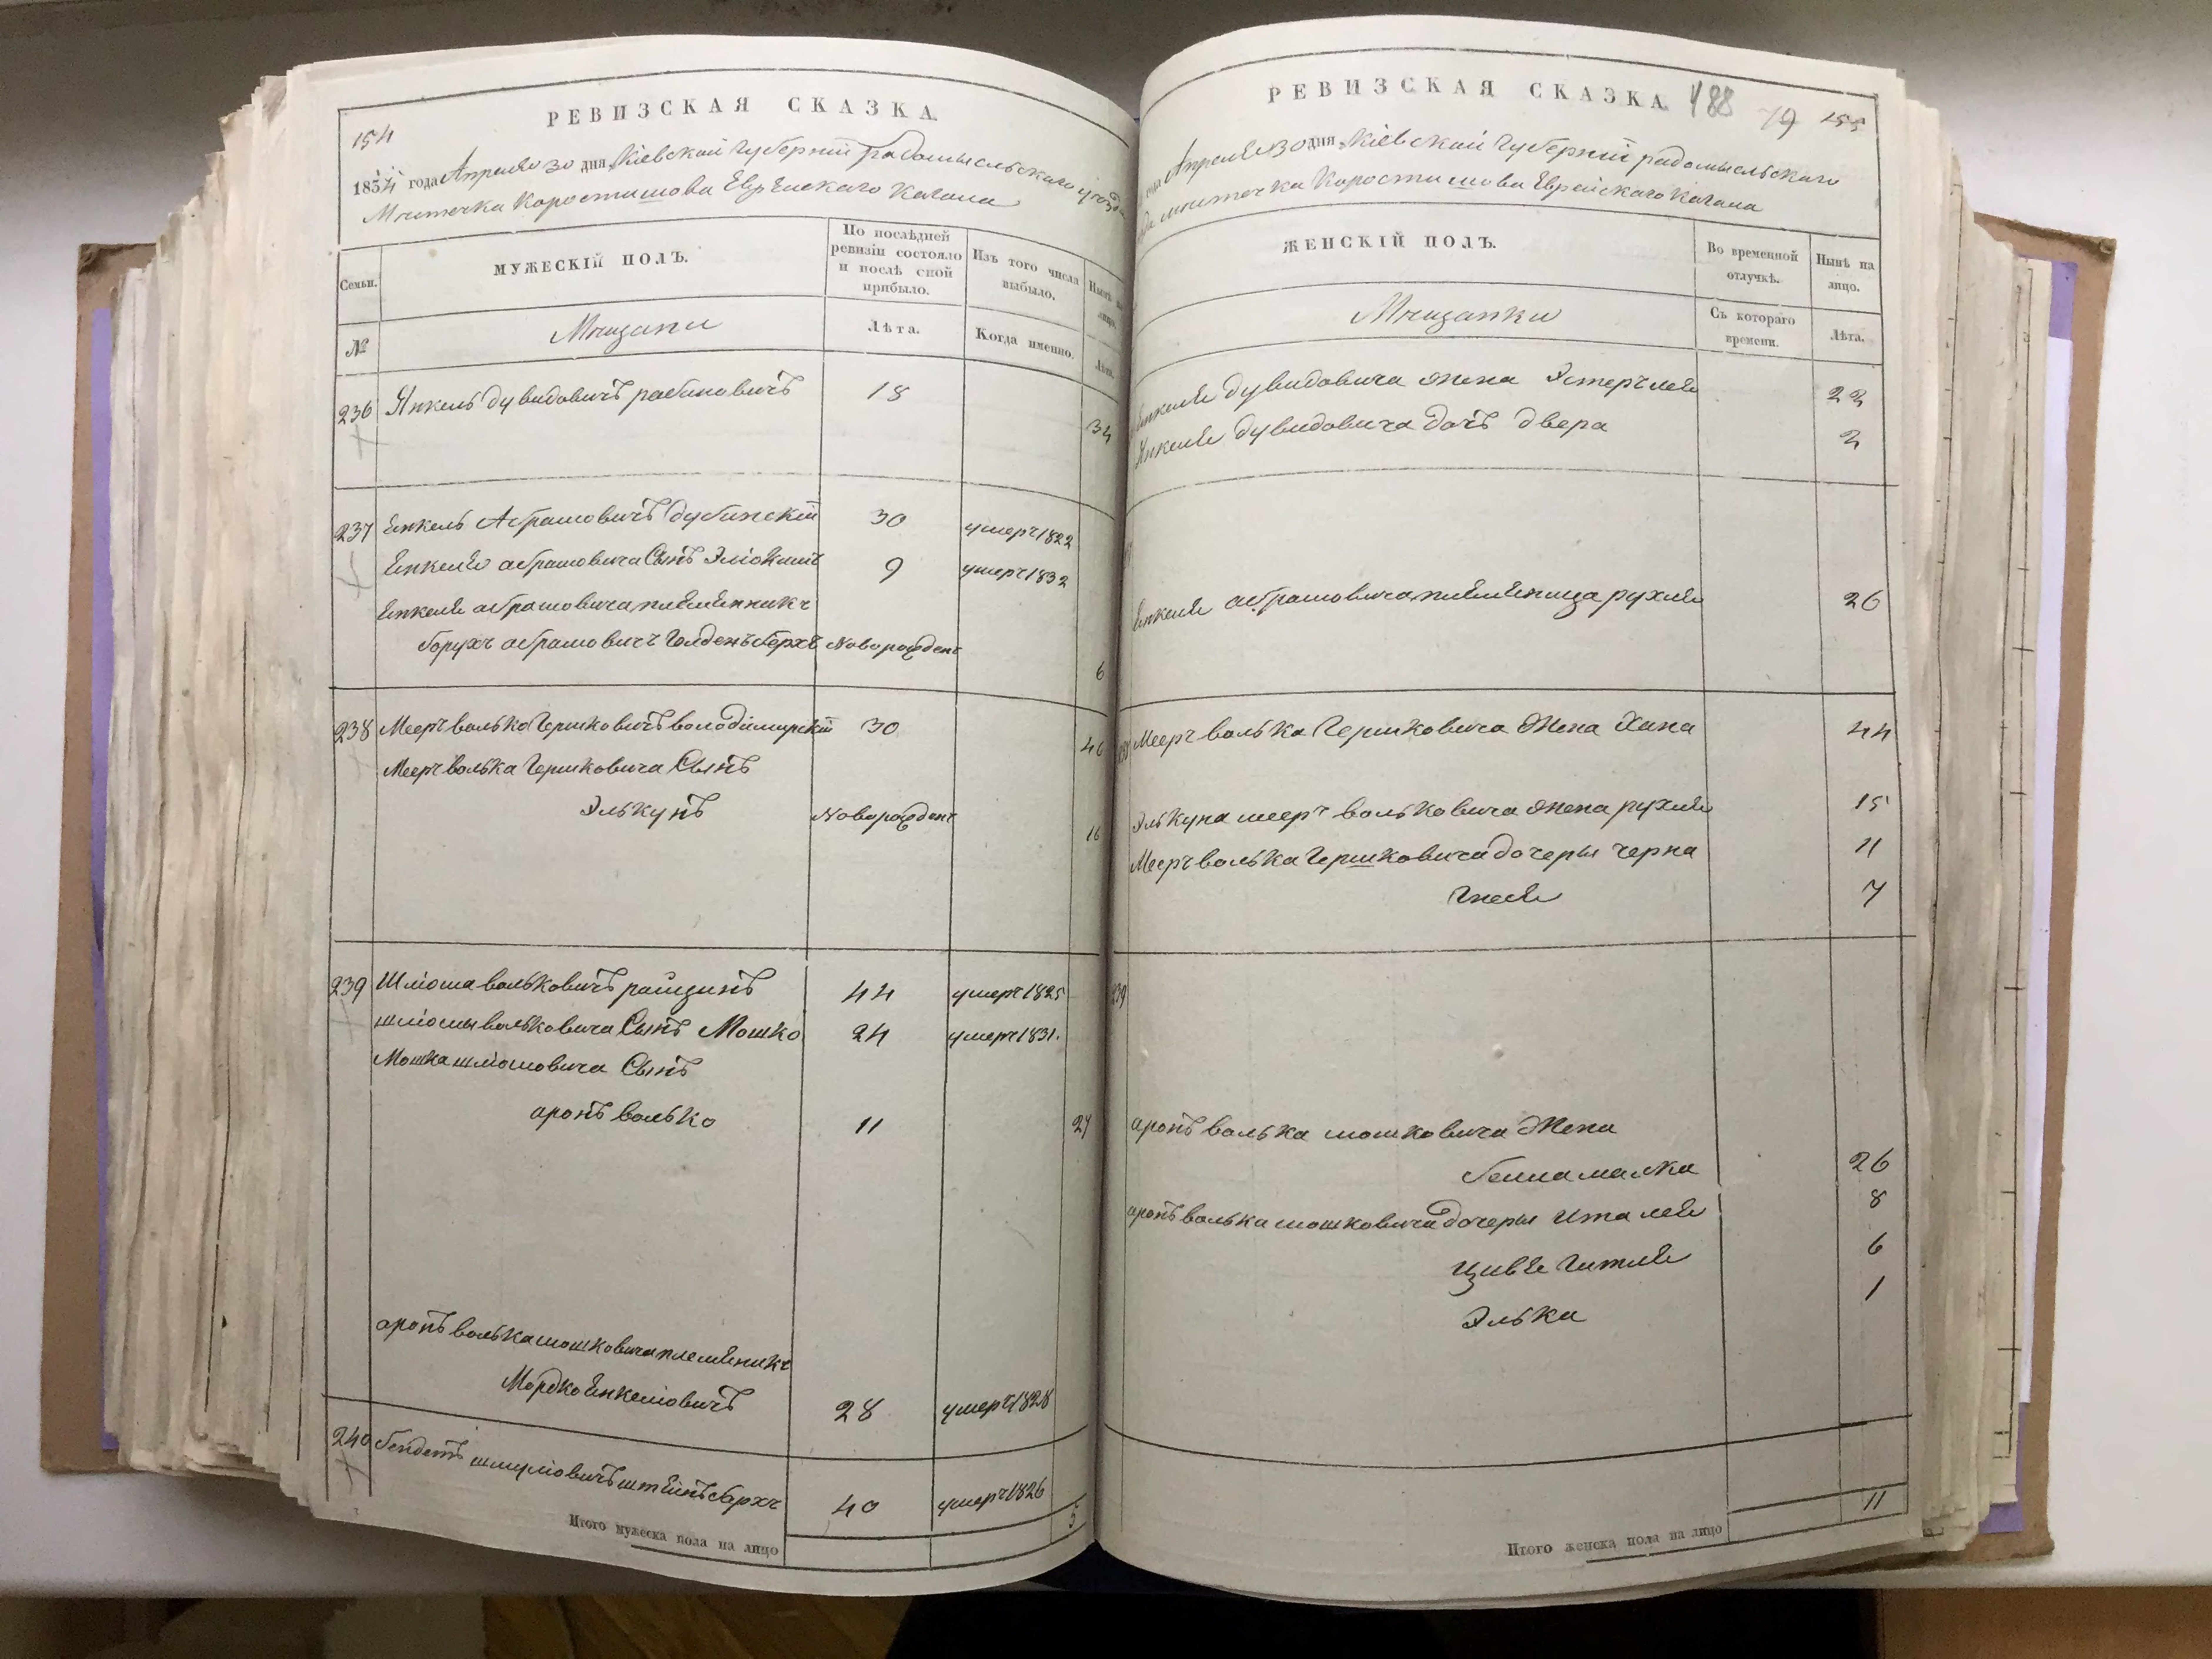 РЕВИЗСКАЯ СКАЗКА.
154
1834 года Апреля 30 дня, Кіевской Губерніи Радомысльскаго уезда
Местечка Коростишова Еврейскаго Кагала
Семьи.
МУЖЕСКІЙ ПОЛЪ.
По послѣдней ревизіи состояло и послѣ оной прибыло.
Изъ того числа выбыло.
Нынѣ на лицо.
№
Мещани
Лѣта.
Когда именно.
Лѣта.
236 Янкель дувидовичъ рабиновичъ 18 34
237 Енкель Абрамовичъ дубинскій 30 умеръ 1822
Енкеля абрамовича Сынъ Эліокимъ 9 умеръ 1832
Енкеля абрамовича племенникъ
борухъ абрамовичъ Голденъберхъ Новорожденъ 6
238 Мееръ волько Гершковичъ володимирскій 30 46
Мееръ волька Гершковича Сынъ
Элькунъ Новорожденъ 16
239 Шліома вольковичъ 44 умеръ 1825
шліомы вольковича Сынъ Мошко 24 умеръ 1831.
Мошка шліомовича Сынъ
аронъ волько 11 27
аронъ волька мошковича племеникъ
Мордко Енкеліовичъ 28 умеръ 1828
240 бендетъ шмуліовичъ штейнъберхъ 40 умеръ 1826
Итого мужеска пола на лицо 5
РЕВИЗСКАЯ СКАЗКА. 488 79 155
Апреля 30 дня, Кіевской Губерніи радомысльскаго
местечка Коростишова Еврейскаго Кагала
ЖЕНСКІЙ ПОЛЪ.
Во временной отлучкѣ.
Нынѣ на лицо.
Мещанки
Съ котораго времени.
Лѣта.
Янкеля дувидовича жена Эстеръ лея 22
Янкеля дувидовича дочъ двера 2
Енкеля абрамовича племеница рухля 26
238 Мееръ волька Гершковича жена Хана 44
Элькуна мееръ вольковича жена рухля 15
Мееръ волька Гершковича дочеры черна 11
Гнеся 7
239
аронъ волька мошковича жена
бейла малка 26
аронъ волька мошковича дочеры Ита лея 8
Цивье Гитля 6
Элька 1
Итого женска пола на лицо 11